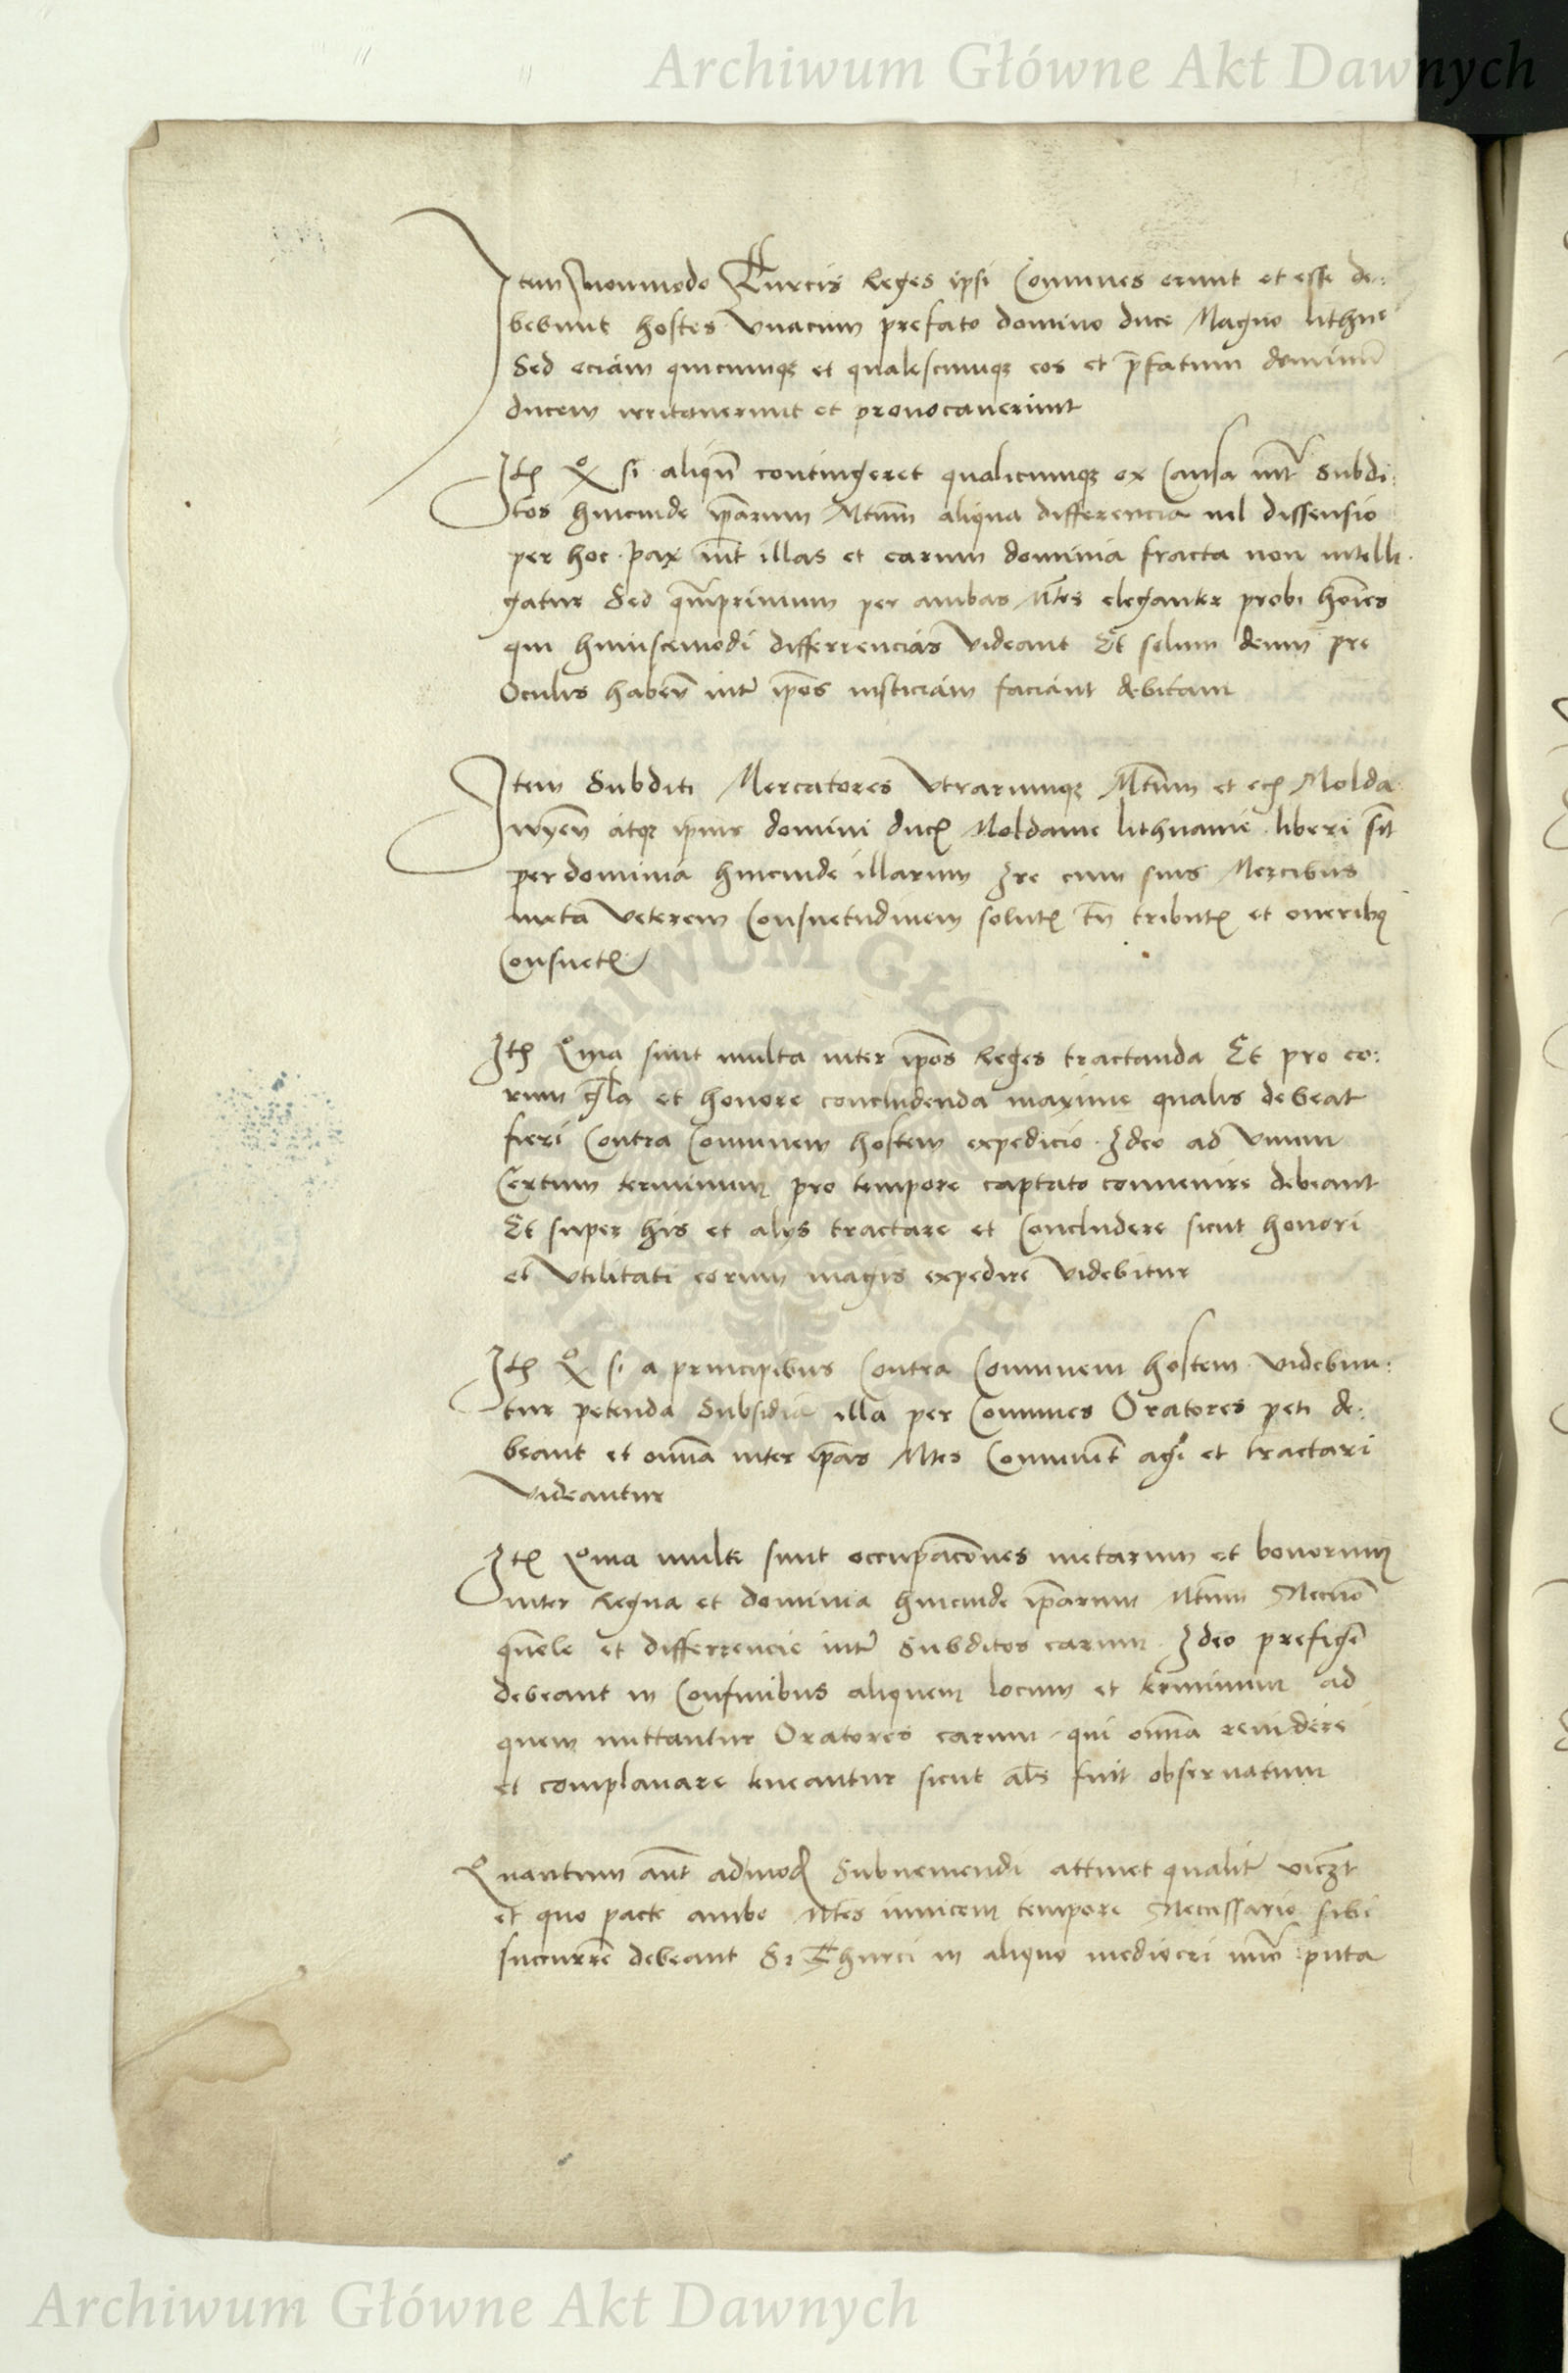 Archiwum Główne Akt Dawnych
Item nonmodo Turcis Reges ipsi Comunes erunt et esse de:
bebunt hostes Vnacum prefato domino duce Magno lithue
Sed eciam quicumqz et qualescumqz eos et p̄fatum dominū
ducem irritauerunt et prouocauerunt
Itē Qo si aliqn̄ contingeret qualicumqz ex Causa int̄ Subdi:
tos hincinde ip̄arum Mtum̄ aliqua differencia vel dissensio
per hoc pax int̄ illas et earum dominia fracta non intelli
gatur Sed qm̄primum per ambas Mtēs eligantur probi hoīes
qui huiuscemodi differrencias Videant Et solum deum pre
Oculis haben̄ int̄ ip̄os iusticiam faciant debitam
Item Subditi Mercatores Vtrarumqz Mtum̄ et ecī Molda
wyen̄ atqz ip̄ius domini ducꝭ Moldauie lithuanie liberi sīt
per dominia hincinde illarum Ire cum suis Mercibus
iuxta Veterem Consuetudinem solutꝭ tn̄ tributꝭ et oneribꝯ
Consuetꝭ
Itē Quia sunt multa inter ip̄os Reges tractanda Et pro eo:
rum gl̄a et honore concludenda maxime qualis debeat
fieri Contra Comunem hostem expedicio Ideo ad Vnum
Certum terminum pro tempore captato conuenire debeant
Et super his et alys tractare et Concludere sicut honori
et Vtilitati eorum magis expedire Videbitur
Itē Qo si a principibus Contra Comunem hostem Videbun:
tur petenda Subsidia illa per Comunes Oratores peti de:
beant et om̄ia inter ip̄as Mtes Comunit̄ agi et tractari
Videantur
Itē Quia multe sunt occupacōnes metarum et bonorum
inter Regna et dominia hincinde ip̄arum Mtum̄ Necnō
querele et differrencie int̄ Subditos earum Ideo prefigi
debeant in Confinibus aliquem locum et terminum ad
quem mittantur Oratores earum qui om̄ia reuidere
et complanare teneantur sicut al̄s fuit obseruatum
Quantum aut̄ admod̄ Subueniendi attinet qualit̄ viczt
et quo pacto ambe Mtes inuicem tempore Necessario sibi
succurrē debeant Si Thurci in aliquo mediocri nūo puta
Archiwum Główne Akt Dawnych